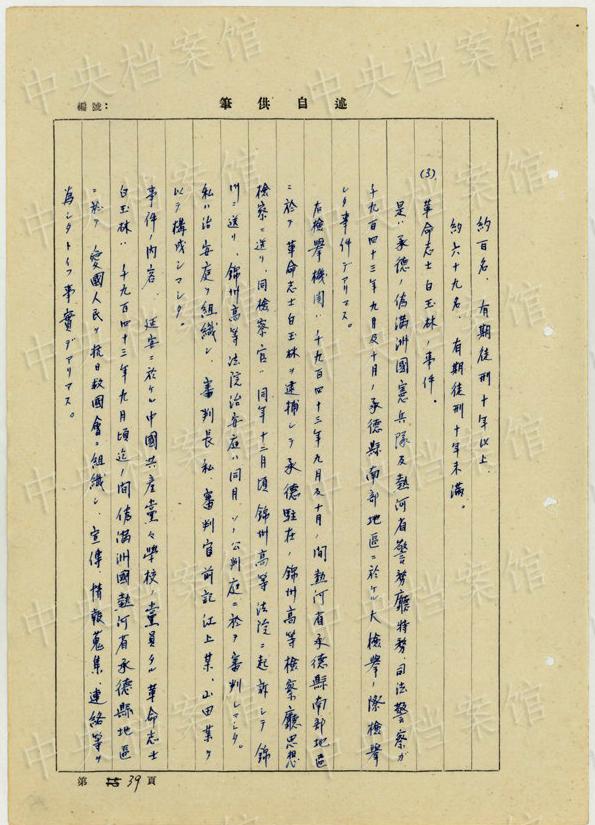 編號：
筆供自述
約百名、有期徒刑十年以上
約六十九名、有期徒刑十年未滿。
(3) 革命志士白玉林ノ事件。
是ハ承德ノ偽滿洲國憲兵隊及熱河省警務廳特務司法警察ガ
千九百四十三年九月及十月ノ承德縣南部地區ニ於ケル大檢擧ノ際檢擧
シタ事件デアリマス。
右檢擧機関ハ千九百四十三年九月及十月ノ間熱河省承德縣南部地區
ニ於テ革命志士白玉林ヲ逮捕シテ承德駐在ノ錦州高等檢察廳思想
檢察ニ送リ、同檢察官ハ同年十二月頃錦州高等法院ニ起訴シテ錦
州ニ送リ、錦州高等法院治安庭ハ同月、ソノ公判庭ニ於テ審判シマシタ。
私ハ治安庭ヲ組織シ、審判長私、審判官前記江上某、山田某ヲ
以テ構成シマシタ。
事件ノ内容、延安ニ於ケル中國共産黨々學校ノ黨員タル革命志士
白玉林ハ、千九百四十三年九月頃迄ノ間偽滿洲國熱河省承德縣地區
ニ於テ、愛國人民ヲ抗日救國會ニ組織シ、宣傳、情報蒐集、連絡等ヲ
為シタトイフ事實デアリマス。
第 39 頁
中央档案馆